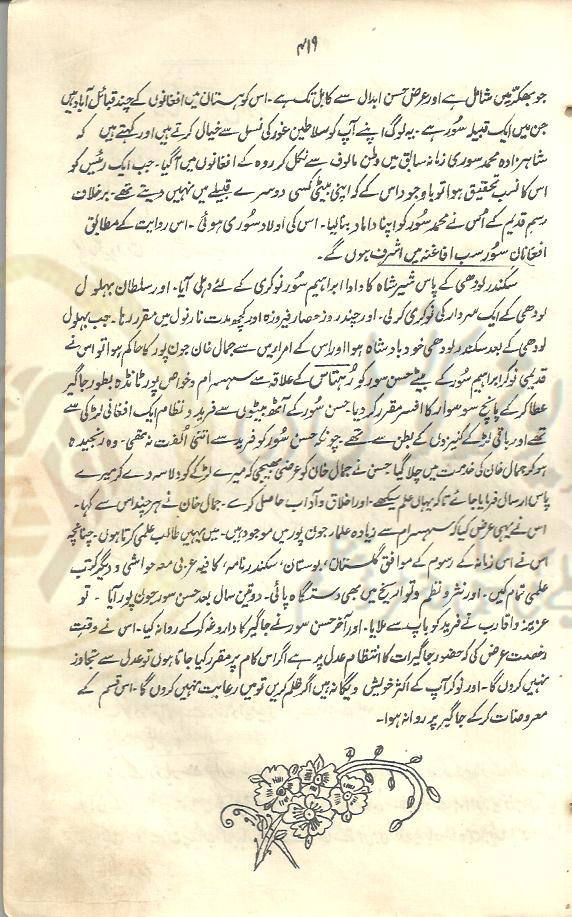 ۴۱۹
جو بھکر میں شامل ہے اور عرض حسن ابدال سے کابل تک ہے۔ اس کوہستان میں افغانوں کے چند قبائل آباد ہیں
جن میں ایک قبیلہ سُور ہے۔ یہ لوگ اپنے آپ کو سلاطین غور کی نسل سے خیال کرتے ہیں اور کہتے ہیں کہ
شاہزادہ محمد سوری زمانہ سابق میں وطن مالوف سے نکل کر روہ کے افغانوں میں آ گیا۔ جب ایک رئیس کو
اس کا نسب تحقیق ہوا تو باوجود اس کے کہ اپنی بیٹی کسی دوسرے قبیلے میں نہیں دیتے تھے۔ برخلاف
رسم قدیم کے اُس نے محمد سُور کو اپنا داماد بنا لیا۔ اس کی اولاد سُوری ہوئی۔ اس روایت کے مطابق
افغانان سُور سب افاغنہ میں اشرف ہوں گے۔
سکندر لودھی کے پاس شیر شاہ کا دادا ابراہیم سُور نوکری کے لئے دہلی آیا۔ اور سلطان بہلول
لودھی کے ایک سردار کی نوکری کر لی۔ اور چند روز حصار فیروزہ اور کچھ مدت نارنول میں مقرر رہا۔ جب بہلول
لودھی کے بعد سکندر لودھی خود بادشاہ ہوا اور اس کے امرا میں سے جمال خان جون پور کا حاکم ہوا تو اس نے
قدیمی نوکر ابراہیم سُور کے بیٹے حسن سور کو رُہتاس کے علاقہ سے سہسرام و خواص پور ٹانڈہ بطور جاگیر
عطا کر کے پانچ سو سوار کا افسر مقرر کر دیا۔ حسن سُور کے آٹھ بیٹوں سے فرید و نظام ایک افغانی لڑکی سے
تھے اور باقی لڑکے کنیزوں کے بطن سے تھے۔ چونکہ حسن سُور کو فرید سے اتنی اُلفت نہ تھی۔ وہ رنجیدہ
ہو کر جمال خان کی خدمت میں چلا گیا حسن نے جمال خان کو عرضی بھیجی کہ میرے لڑکے کو دلاسہ دے کر میرے
پاس ارسال فرمایا جائے تاکہ یہاں علم سیکھے۔ اور اخلاق و آداب حاصل کرے۔ جمال خان نے ہر چند اس سے کہا۔
اس نے یہی عرض کیا کہ سہسرام سے زیادہ علماء جون پور میں موجود ہیں۔ میں یہیں طالب علمی کرتا ہوں۔ چنانچہ
اس نے اس زمانہ کے رسوم کے موافق گلستان، بوستان، سکندر نامہ، کافیہ عربی معہ حواشی و دیگر کتب
علمی تمام کیں۔ اور نثر و نظم و تواریخ میں بھی دستگاہ پائی۔ دو تین سال بعد حسن سور جون پور آیا۔ تو
عزیز و اقارب نے فرید کو باپ سے ملایا۔ اور آخر حسن سور نے جاگیر کا داروغہ کر کے روانہ کیا۔ اس نے وقت
رخصت عرض کی کہ حضور جاگیرات کا انتظام عدل پر ہے اگر اس کام پر مقرر کیا جاتا ہوں تو عدل سے تجاوز
نہیں کروں گا۔ اور نوکر آپ کے اکثر خویش و یگانہ ہیں اگر ظلم کریں تو میں رعایت نہیں کروں گا۔ اس قسم کے
معروضات کر کے جاگیر پر روانہ ہوا۔